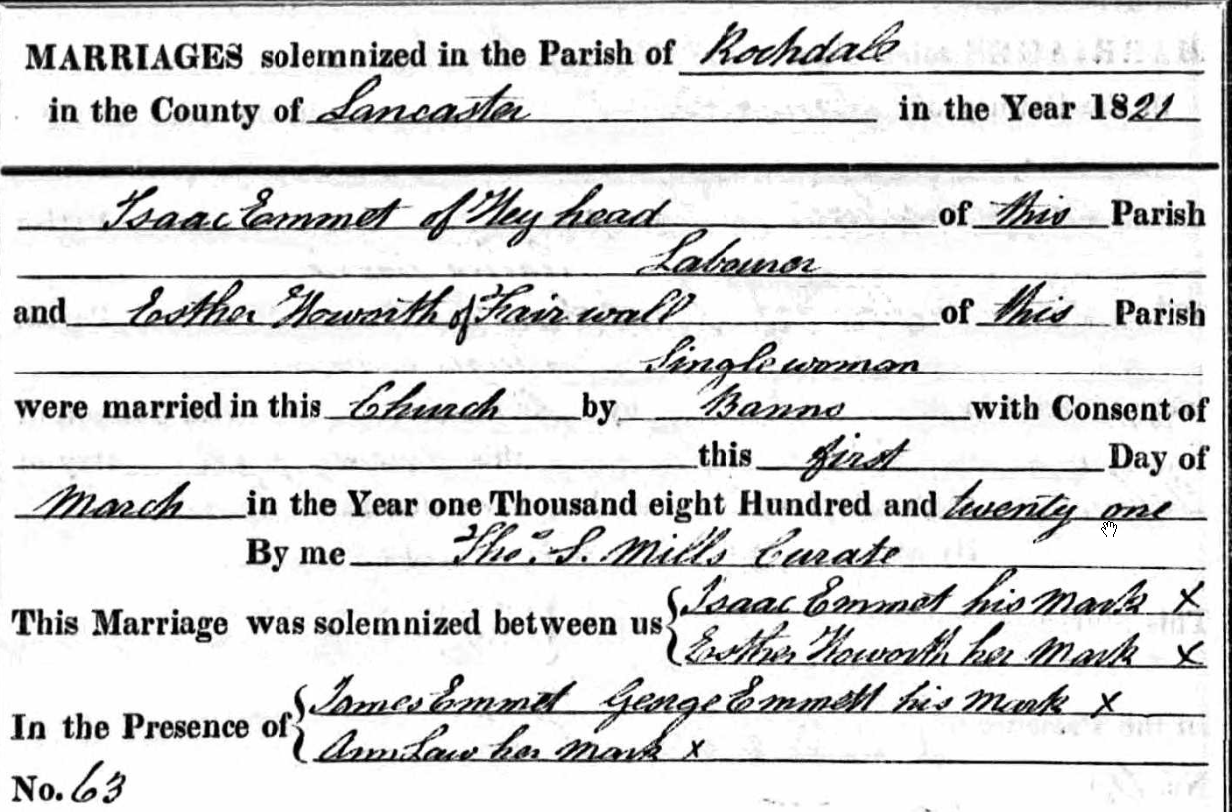 MARRIAGES solemnized in the Parish of Rochdale
in the County of Lancaster in the Year 1821
Isaac Emmet of Hey head of this Parish
Labourer
and Esther Howorth of Fair wall of this Parish
Single woman
were married in this Church by Banns with Consent of
this first Day of
March in the Year one Thousand eight Hundred and twenty one
By me Thos. S. Mills Curate
This Marriage was solemnized between us { Isaac Emmet his Mark X
Esther Howorth her Mark X
In the Presence of { James Emmet George Emmett his Mark X
Ann Law her Mark X
No. 63